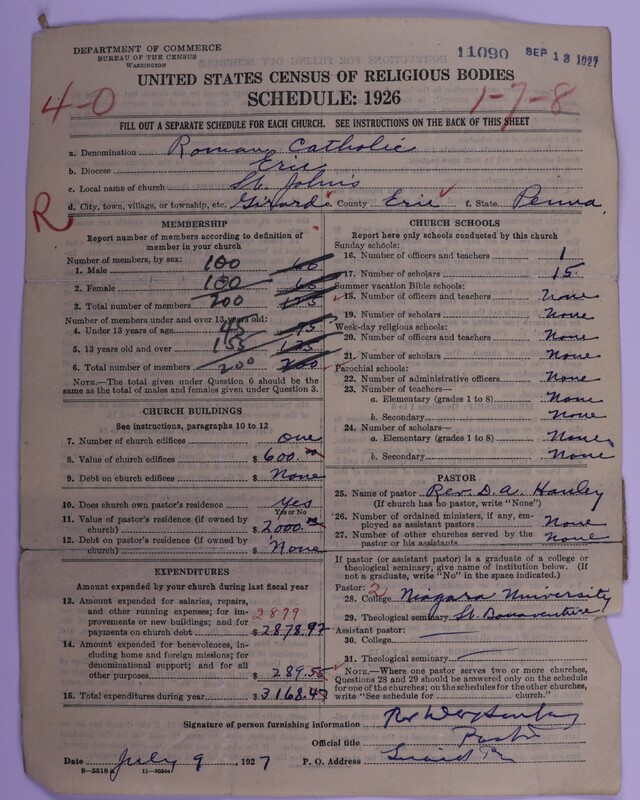 DEPARTMENT OF COMMERCE
BUREAU OF THE CENSUS
WASHINGTON
11090 SEP 13 1927
UNITED STATES CENSUS OF RELIGIOUS BODIES
SCHEDULE: 1926
4-0
1-7-8
FILL OUT A SEPARATE SCHEDULE FOR EACH CHURCH. SEE INSTRUCTIONS ON THE BACK OF THIS SHEET
a. Denomination Roman Catholic
b. Diocese Erie
c. Local name of church St. John's
d. City, town, village, or township, etc. Girard e. County Erie f. State Penna.
R
MEMBERSHIP
Report number of members according to definition of
member in your church
Number of members, by sex:
1. Male 100 60
2. Female 100 65
3. Total number of members 200 125
Number of members under and over 13 years old:
4. Under 13 years of age 45 75
5. 13 years old and over 155 125
6. Total number of members 200 200
NOTE.—The total given under Question 6 should be
the same as the total of males and females given under Question 3.
CHURCH BUILDINGS
See instructions, paragraphs 10 to 12
7. Number of church edifices one
8. Value of church edifices $ 600.00
9. Debt on church edifices $ None
10. Does church own pastor's residence? Yes
Yes or No
11. Value of pastor's residence (if owned by
church) $ 2000.00
12. Debt on pastor's residence (if owned by
church) $ None
EXPENDITURES
Amount expended by your church during last fiscal year
13. Amount expended for salaries, repairs,
and other running expenses; for im-
provements or new buildings; and for 2879
payments on church debt $ 2878.92
14. Amount expended for benevolences, in-
cluding home and foreign missions; for
denominational support; and for all
other purposes $ 289.55
15. Total expenditures during year $ 3168.47
CHURCH SCHOOLS
Report here only schools conducted by this church
Sunday schools:
16. Number of officers and teachers 1
17. Number of scholars 15
Summer vacation Bible schools:
18. Number of officers and teachers None
19. Number of scholars None
Week-day religious schools:
20. Number of officers and teachers None
21. Number of scholars None
Parochial schools:
22. Number of administrative officers None
23. Number of teachers—
a. Elementary (grades 1 to 8) None
b. Secondary None
24. Number of scholars—
a. Elementary (grades 1 to 8) None
b. Secondary None
PASTOR
25. Name of pastor Rev. D. A. Hanley
(If church has no pastor, write "None")
26. Number of ordained ministers, if any, em-
ployed as assistant pastors None
27. Number of other churches served by the
pastor or his assistants None
If pastor (or assistant pastor) is a graduate of a college or
theological seminary, give name of institution below. (If
not a graduate, write "No" in the space indicated.)
Pastor: 2
28. College Niagara University
29. Theological seminary St. Bonaventure
Assistant pastor:
30. College
31. Theological seminary
NOTE.—Where one pastor serves two or more churches,
Questions 28 and 29 should be answered only on the schedule
for one of the churches; on the schedules for the other churches,
write "See schedule for church."
Signature of person furnishing information
Official title Pastor
Date July 9, 1927 P. O. Address Girard Pa
8—5518 a 11—9084a